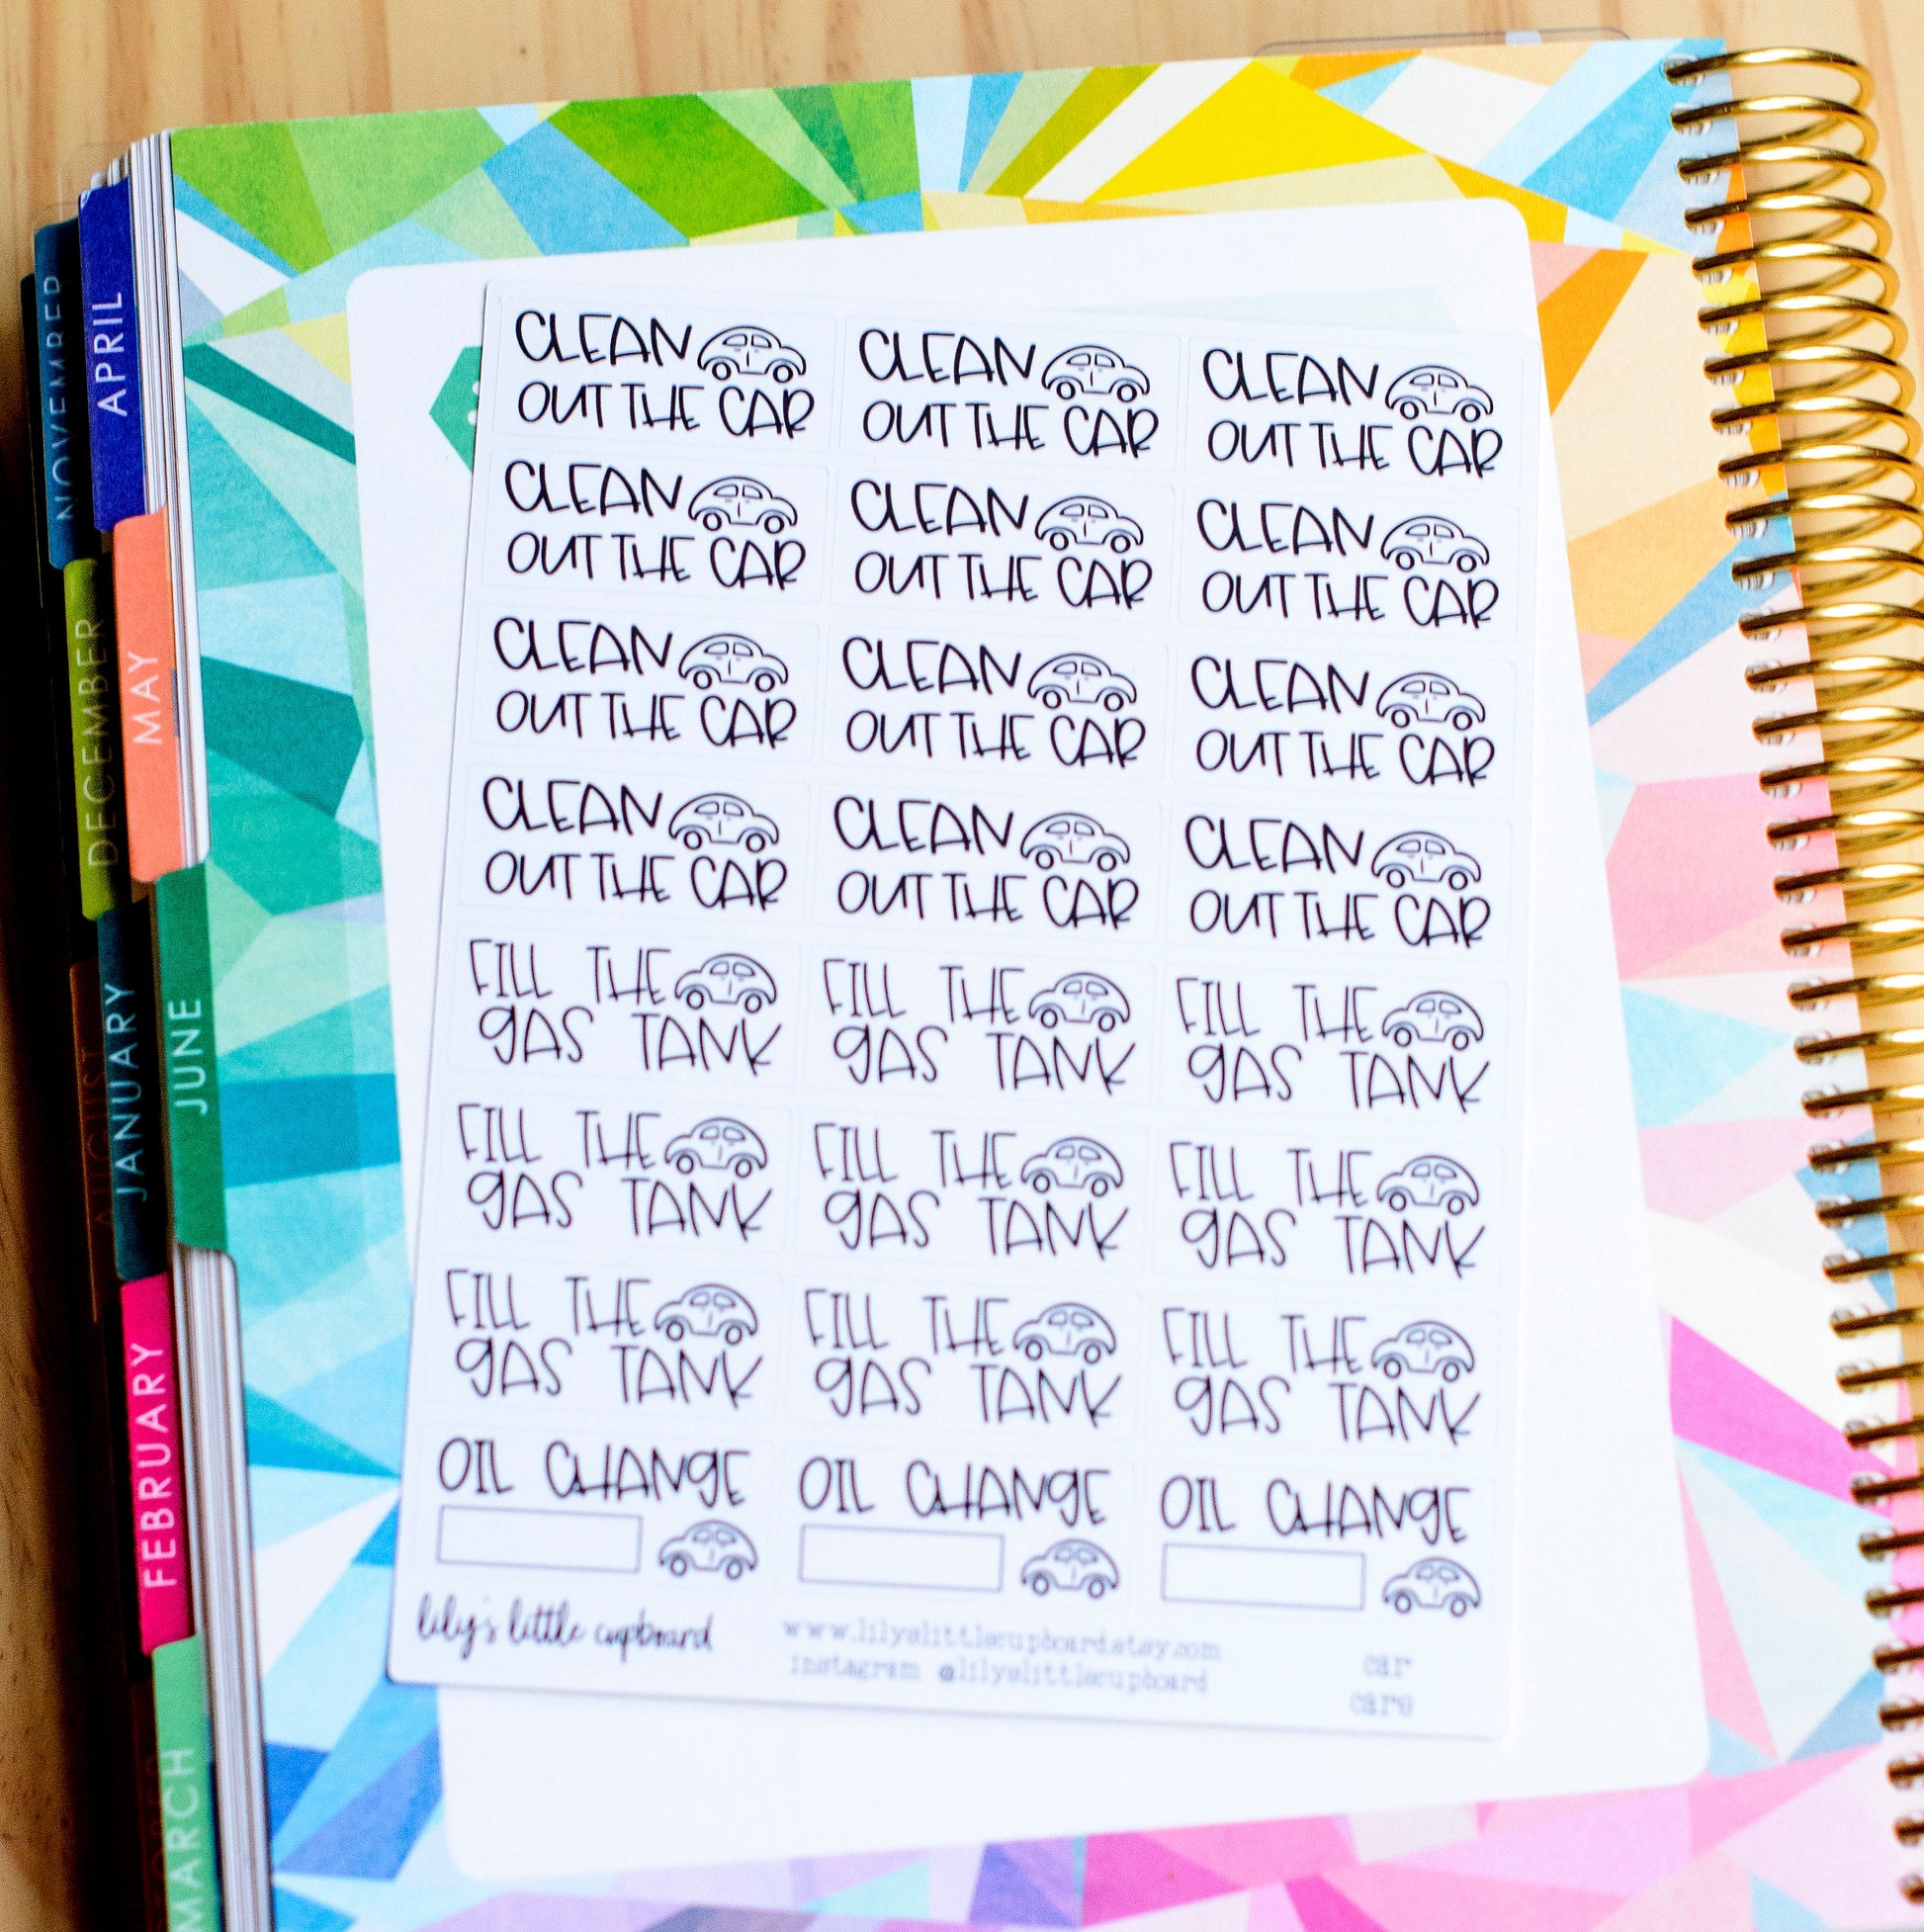 CLEAN CLEAN CLEAN
OUT THE CAR OUT THE CAR OUT THE CAR
CLEAN CLEAN CLEAN
OUT THE CAR OUT THE CAR OUT THE CAR
CLEAN CLEAN CLEAN
OUT THE CAR OUT THE CAR OUT THE CAR
CLEAN CLEAN CLEAN
OUT THE CAR OUT THE CAR OUT THE CAR
FILL THE FILL THE FILL THE
gAS TANK gAS TANK gAS TANK
FILL THE FILL THE FILL THE
gAS TANK gAS TANK gAS TANK
FILL THE FILL THE FILL THE
gAS TANK gAS TANK gAS TANK
OIL CHANgE OIL CHANgE OIL CHANgE
lily's little cupboard
www.lilyslittlecupboard.etsy.com
instagram @lilyslittlecupboard
car
care
NOVEMBER
APRIL
DECEMBER
MAY
AUGUST
JANUARY
JUNE
FEBRUARY
MARCH